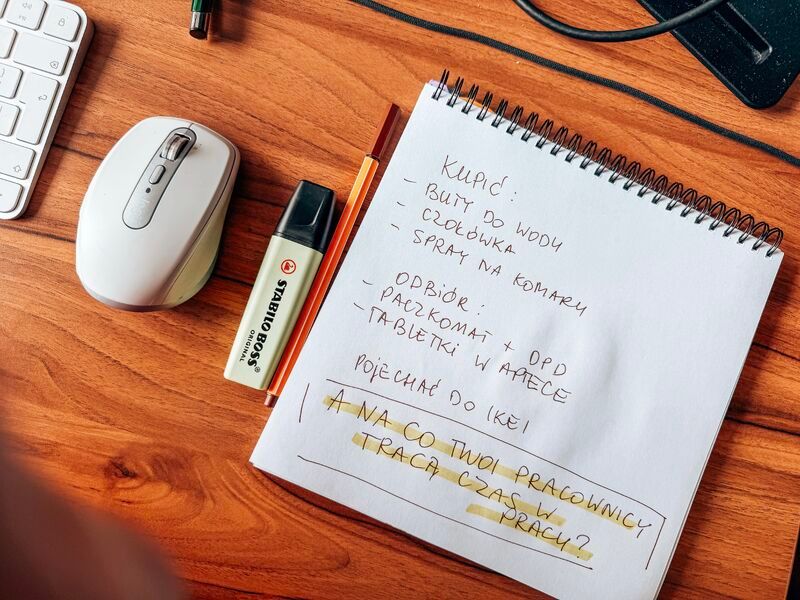 KUPIĆ:
- BUTY DO WODY
- CZOŁÓWKA
- SPRAY NA KOMARY
ODBIÓR:
- PACZKOMAT + DPD
- TABLETKI W APECE
POJECHAĆ DO IKEI
A NA CO TWOI PRACOWNICY
TRACĄ CZAS W
PRACY?
STABILO BOSS
ORIGINAL